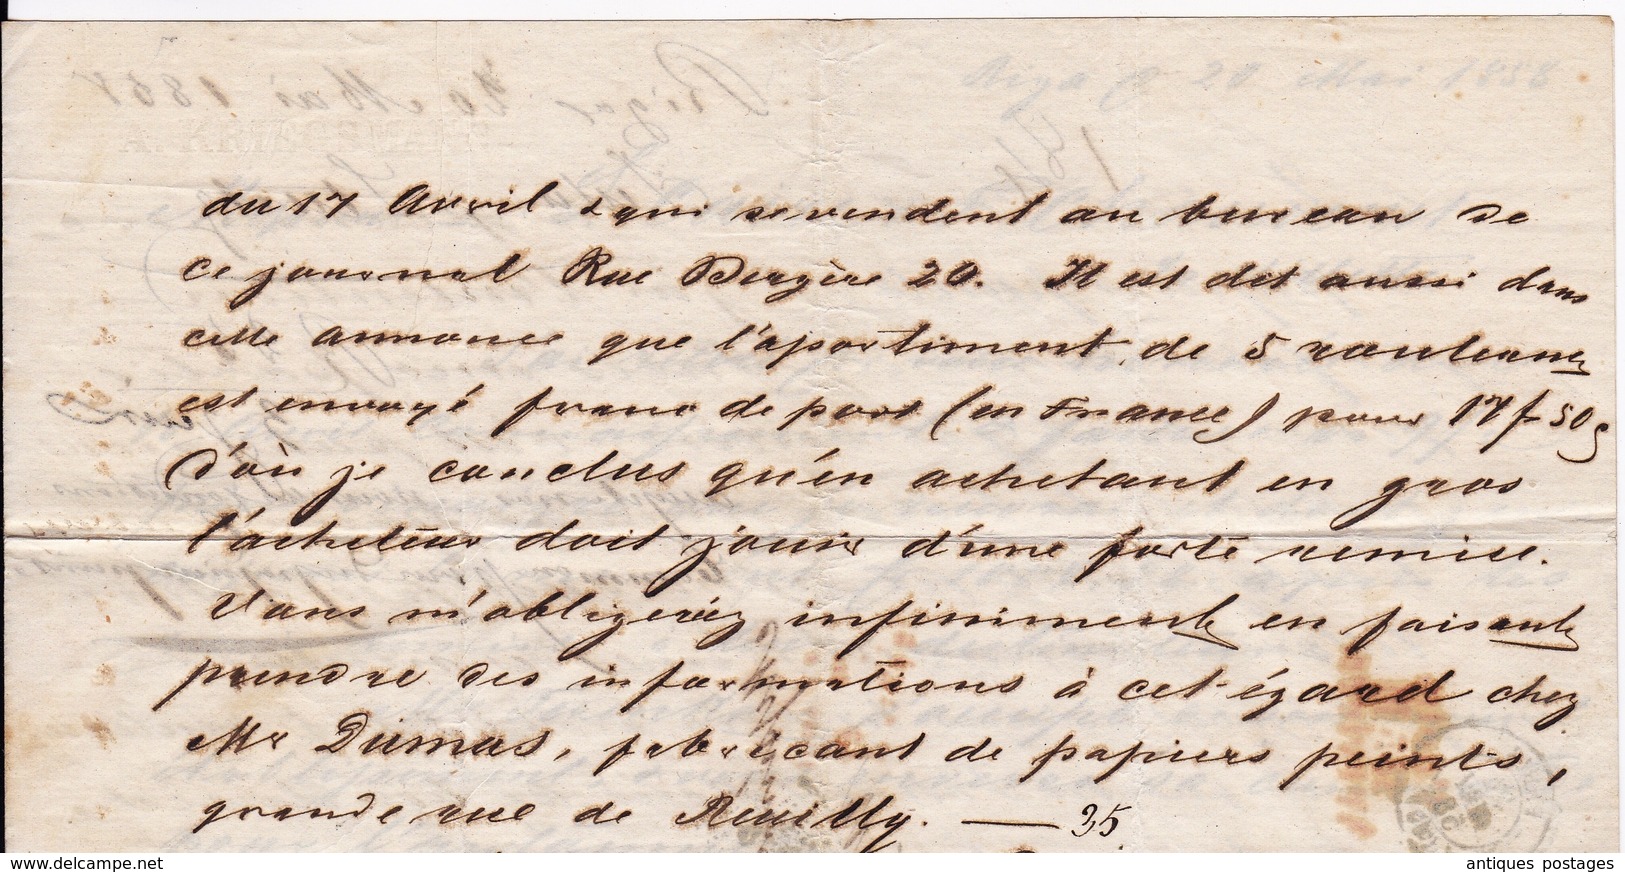 Riga 20 Mai 1858
du 17 Avril & qui se vendent au bureau de
ce journal Rue Bergère 20. Il est dit aussi dans
cette annonce que l'aportiment de 5 rouleaux
est envoyé franc de port (en France) pour 17f 50c
d'où je conclus qu'en achetant en gros
l'acheteur doit jouir d'une forte remise.
Vous m'obligeriez infiniment en faisant
prendre des informations à cet égard chez
Mr Dumas, fabricant de papiers peints,
grande rue de Reuilly. — 35
delcampe.net
antiques postages